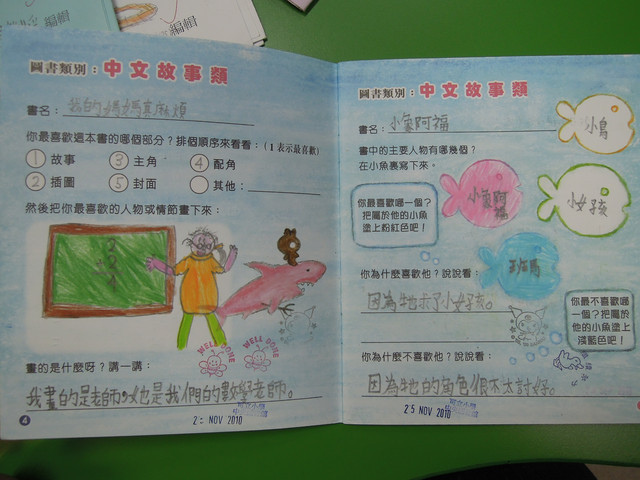 編輯
編輯
圖書類別：中文故事類
書名：我的媽媽真麻煩
你最喜歡這本書的哪個部分？排個順序來看看：(1表示最喜歡)
1 故事 3 主角 4 配角
2 插圖 5 封面 其他：
然後把你最喜歡的人物或情節畫下來：
WELL DONE
WELL DONE
畫的是什麼呀？講一講：
我畫的是老師，她也是我們的數學老師。
NOV 2010
4
圖書類別：中文故事類
書名：小象阿福
書中的主要人物有哪幾個？
在小魚裏寫下來。
小鳥
小象阿福
小女孩
斑馬
你最喜歡哪一個？
把屬於他的小魚
塗上粉紅色吧！
你為什麼喜歡他？說說看：
因為牠示了小女孩。
你最不喜歡哪
一個？把屬於
他的小魚塗上
淺藍色吧！
你為什麼不喜歡他？說說看：
因為牠的角色很不太討好。
25 NOV 2010